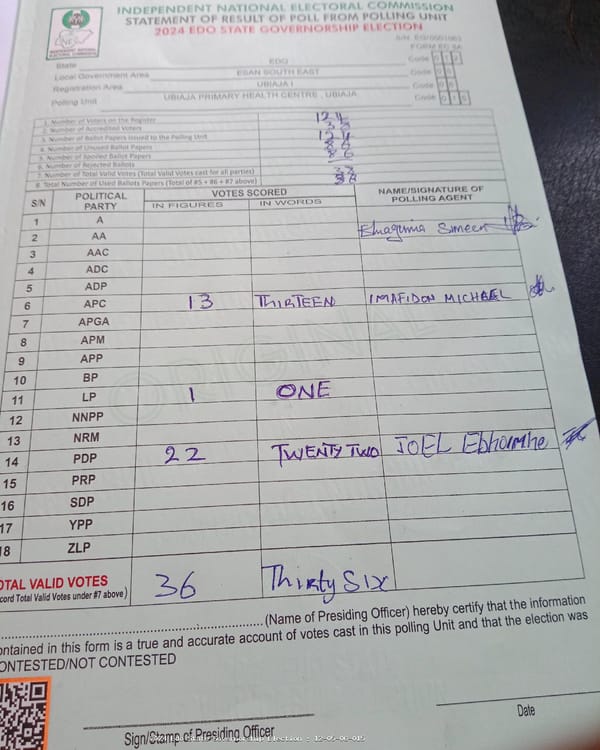 INDEPENDENT NATIONAL ELECTORAL COMMISSION
STATEMENT OF RESULT OF POLL FROM POLLING UNIT
2024 EDO STATE GOVERNORSHIP ELECTION
FORM EC 8A
State EDO Code
Local Government Area ESAN SOUTH EAST Code
Registration Area UBIAJA I Code
Polling Unit UBIAJA PRIMARY HEALTH CENTRE , UBIAJA Code
1. Number of Voters on the Register 124
2. Number of Accredited Voters
3. Number of Ballot Papers Issued to the Polling Unit 124
4. Number of Unused Ballot Papers
5. Number of Spoiled Ballot Papers
6. Number of Rejected Ballots
7. Number of Total Valid Votes (Total Valid Votes cast for all parties)
8. Total Number of Used Ballots Papers (Total of #5 + #6 + #7 above)
S/N POLITICAL PARTY VOTES SCORED NAME/SIGNATURE OF POLLING AGENT
IN FIGURES IN WORDS
1 A
2 AA
3 AAC
4 ADC
5 ADP
6 APC 13 THIRTEEN IMAFIDON MICHAEL
7 APGA
8 APM
9 APP
10 BP
11 LP 1 ONE
12 NNPP
13 NRM
14 PDP 22 TWENTY TWO JOEL
15 PRP
16 SDP
17 YPP
18 ZLP
OTAL VALID VOTES 36 Thirty Six
cord Total Valid Votes under #7 above)
(Name of Presiding Officer) hereby certify that the information
ontained in this form is a true and accurate account of votes cast in this polling Unit and that the election was
ONTESTED/NOT CONTESTED
Sign/Stamp of Presiding Officer
Date